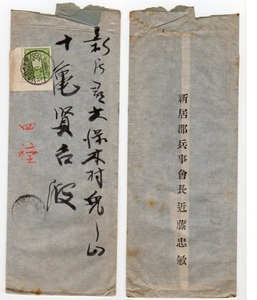 新居郡大保木村兎之山
十亀賢吉殿
四種
新居郡兵事會長近藤忠敏